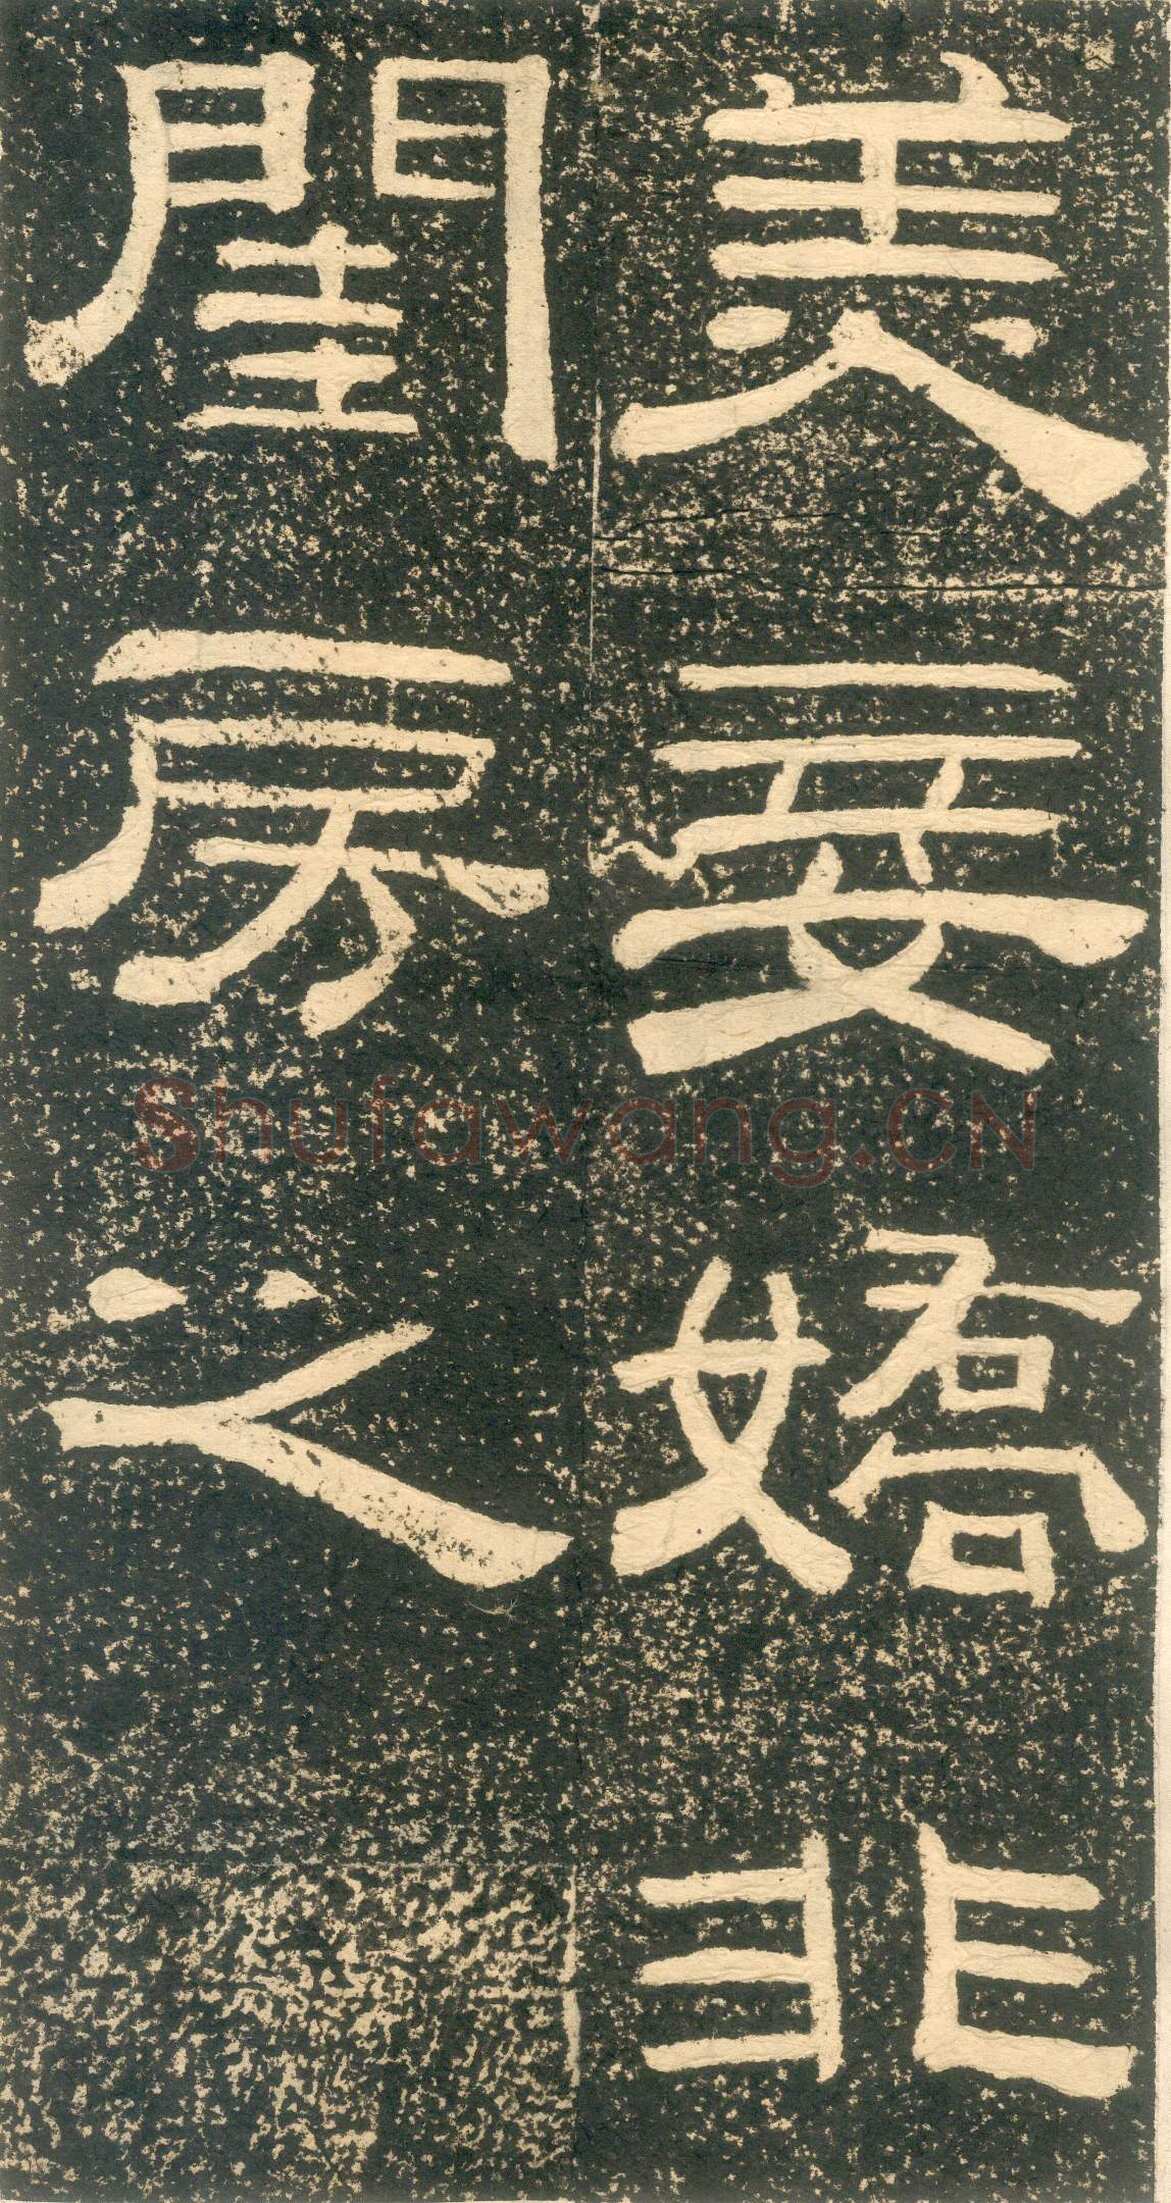 美妾嬌非
閨房之
Shufawang.CN